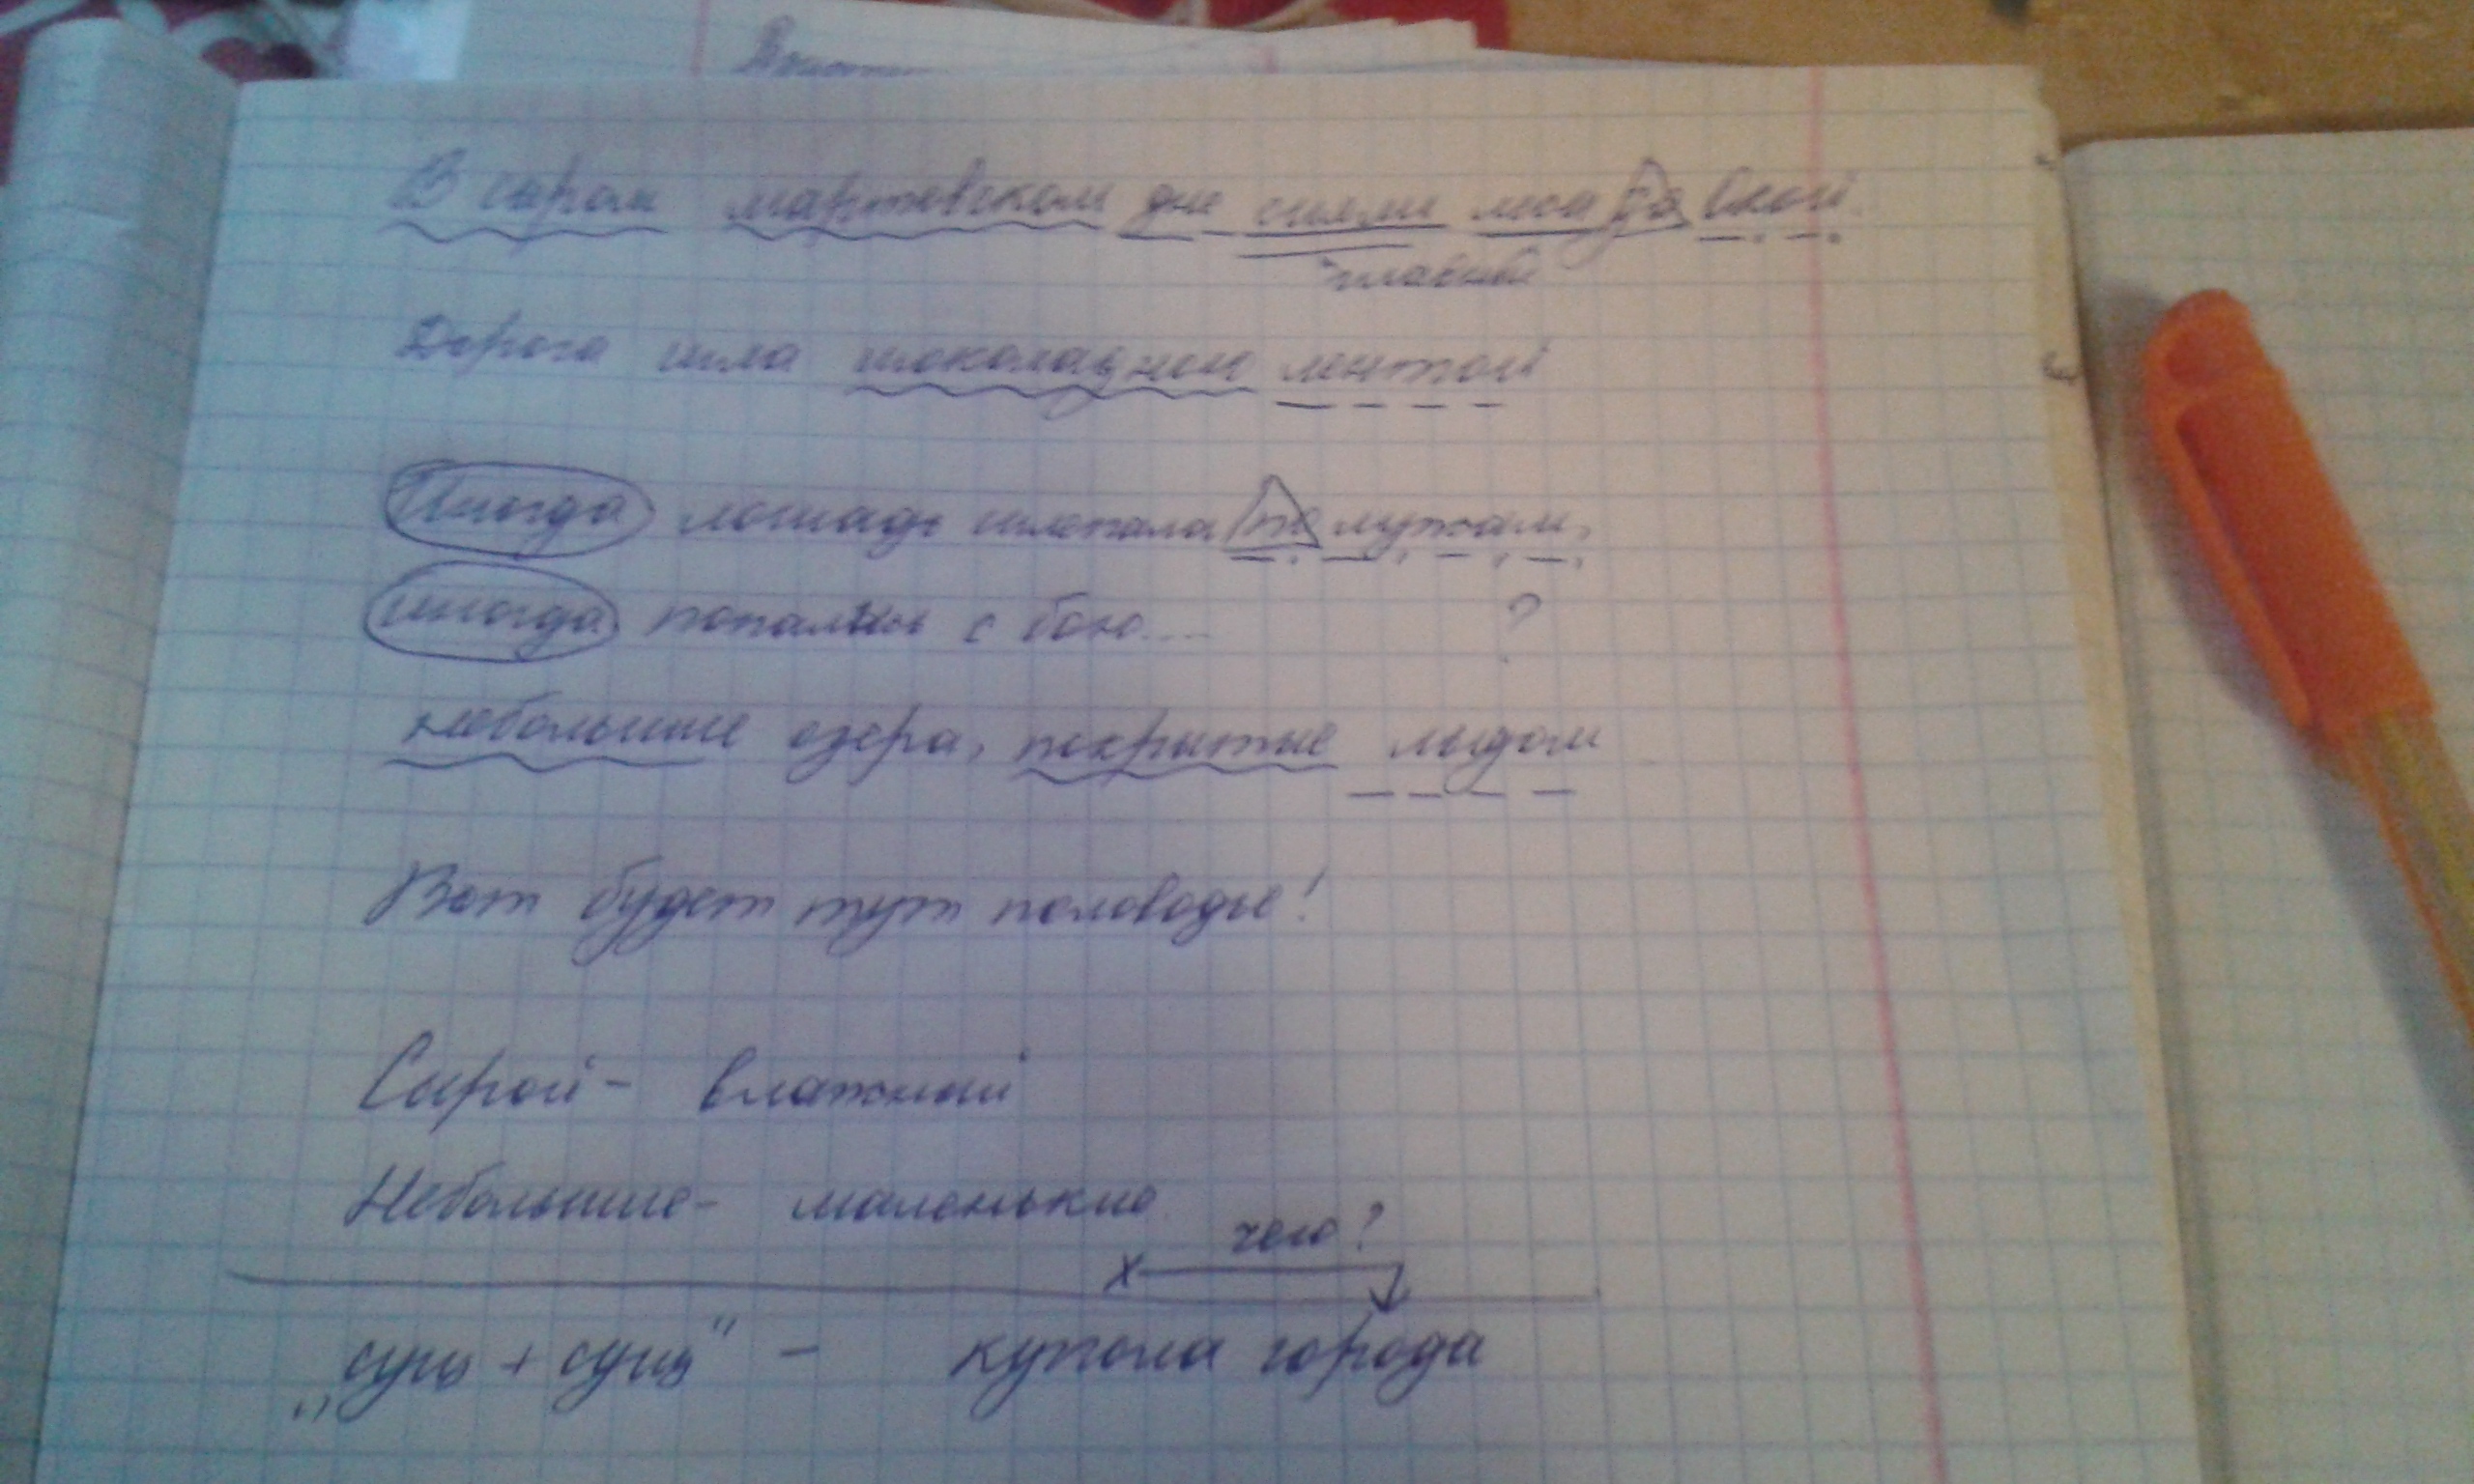 В сыром мартовском дне сияли
Дорога шла шоколадною лентой
Иногда лошадь шлепала по лужам,
иногда с бою....
?
небольшие озера, покрытые льдом
Вот будет тут половодье!
Сырой - влажный
Небольшие - маленькие
чего?
„сущ + сущ" - купола города